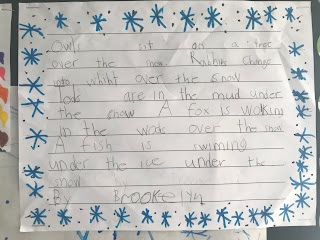 Owls sit on a tree
over the snow Rabbits change
into whiht over the snow
are in the mud under
the snow A fox is walking
in the wods over the snow
A fish is swiming
under the ice under the
snow
By Brookelyn